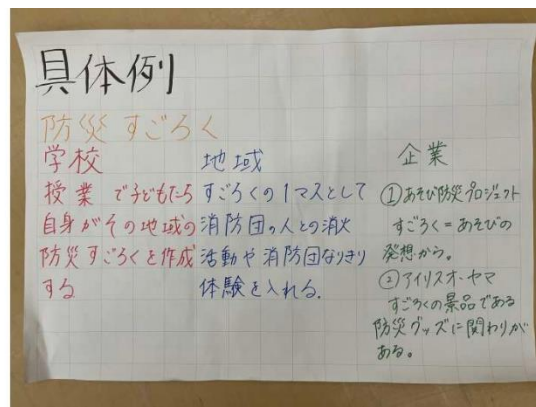 具体例
防災すごろく
学校
授業で子どもたち
自身がその地域の
防災すごろくを作成
する
地域
すごろくの1マスとして
消防団の人との消火
活動や消防団なりきり
体験を入れる.
企業
①あそび防災プロジェクト
すごろく=あそびの
発想から。
②アイリスオーヤマ
すごろくの景品である
防災グッズに関わりが
ある。